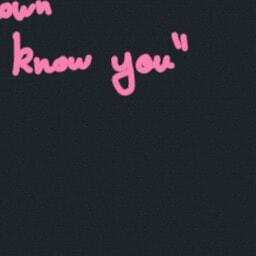 own
know you"